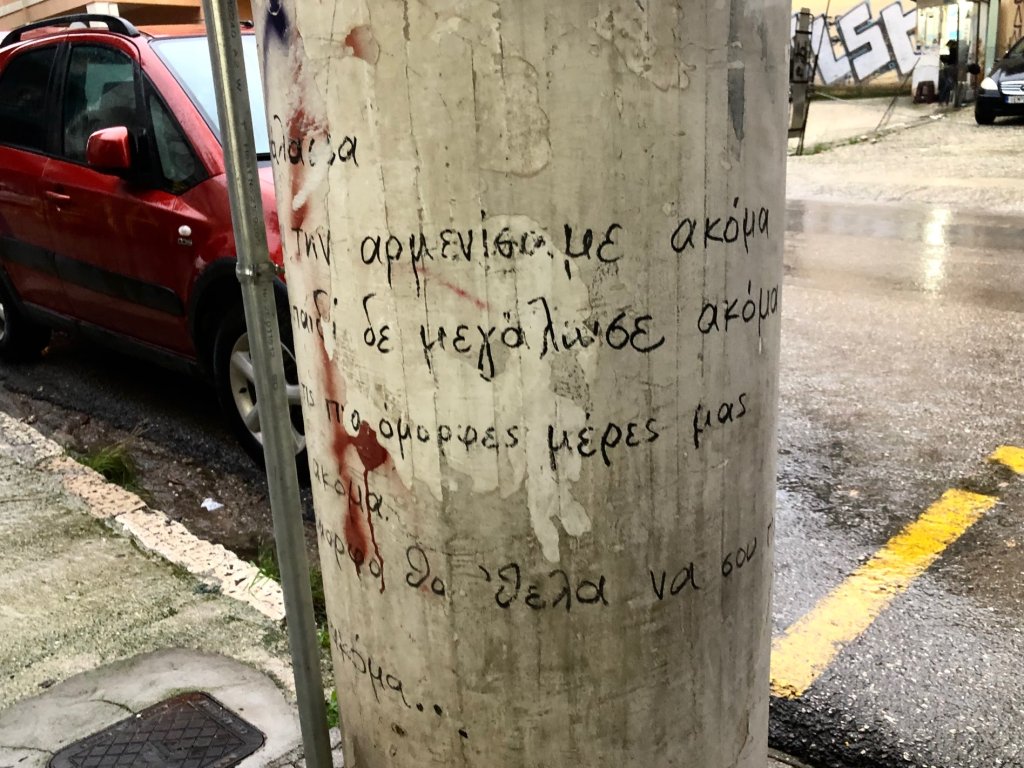 θάλασσα
την αρμενίσαμε ακόμα
παιδί δε μεγάλωσε ακόμα
τις πιο όμορφες μέρες μας
ακόμα.
όμορφο θα 'θελα να σου
ακόμα...